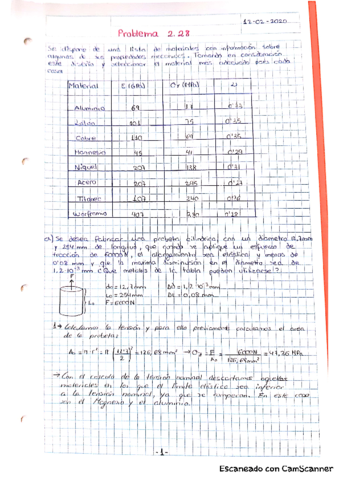 12-02-2020
Problema 2.28
Se dispone de una lista de materiales con información sobre
algunas de sus propiedades mecánicas. Tomando en consideración
este diseño y seleccionar el material más adecuado para cada
caso
Material E (GPa) σy (MPa) ν
Aluminio 69
Latón 101 75
Cobre 110 69 0'35
Magnesio 45 41 0'29
Níquel 207 138 0'31
Acero 207 0'27
Titanio 107 240 0'36
Wolframio 407 0'28
a) Se desea fabricar una probeta cilíndrica con un diámetro 12,7mm
y 254 mm de longitud, que cuando se aplique un esfuerzo de
tracción de 6000N, el alargamiento sea elástico y menos de
0'08 mm y que la máxima disminución en el diámetro sea de
1.2·10⁻³ mm ¿Qué metales de la tabla pueden utilizarse?
do = 12,7mm
Lo = 254mm
F = 6000N
Δd = 1,2·10⁻³mm
ΔL = 0,08mm
Lo
1 → Calculamos la tensión y para ello previamente calculamos el área
de la probeta:
A₀ = π·r² = π (12'7/2)² = 126,68 mm² → σz = F/A₀ = 6000N/126,68mm² = 47,36 MPa
→ Con el cálculo de la tensión nominal descartamos aquellos
materiales en los que el límite elástico sea inferior
a la tensión nominal, ya que se romperán. En este caso
son el Magnesio y el aluminio.
-1-
Escaneado con CamScanner